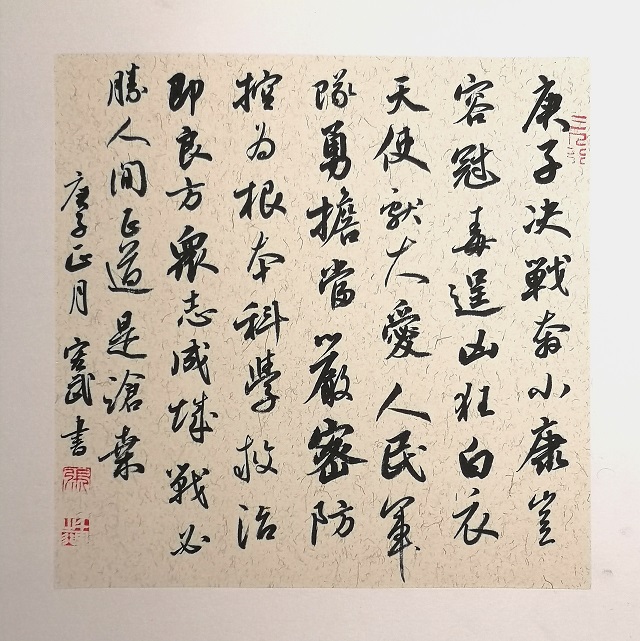 庚子决戰奔小康豈
容冠毒逞凶狂白衣
天使獻大愛人民軍
隊勇擔當嚴密防
控为根本科學救治
即良方衆志成城戰必
勝人间正道是滄桑
庚子正月宏武書